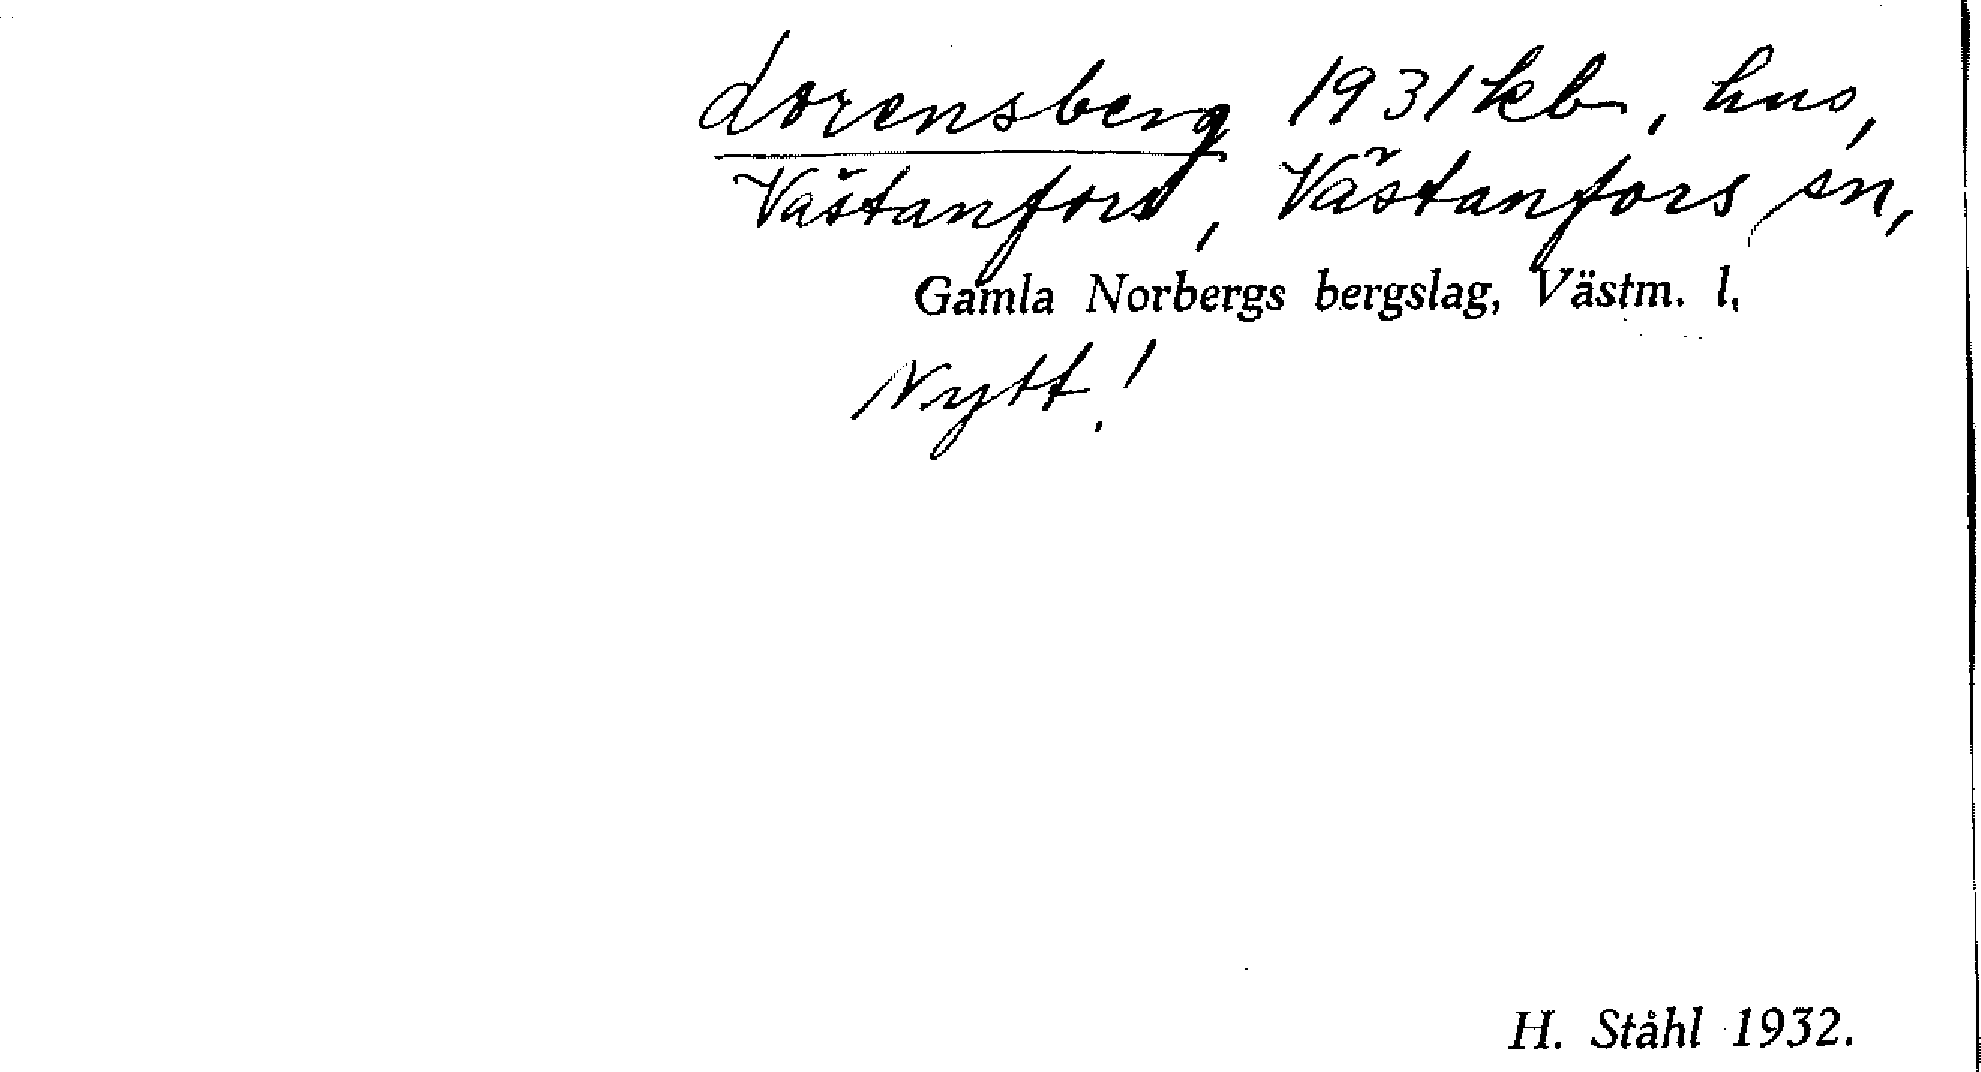 Lorensberg 1931 kb, hus,
Västanfors, Västanfors sn,
Gamla Norbergs bergslag, Västm. l.
Nytt!
H. Ståhl 1932.